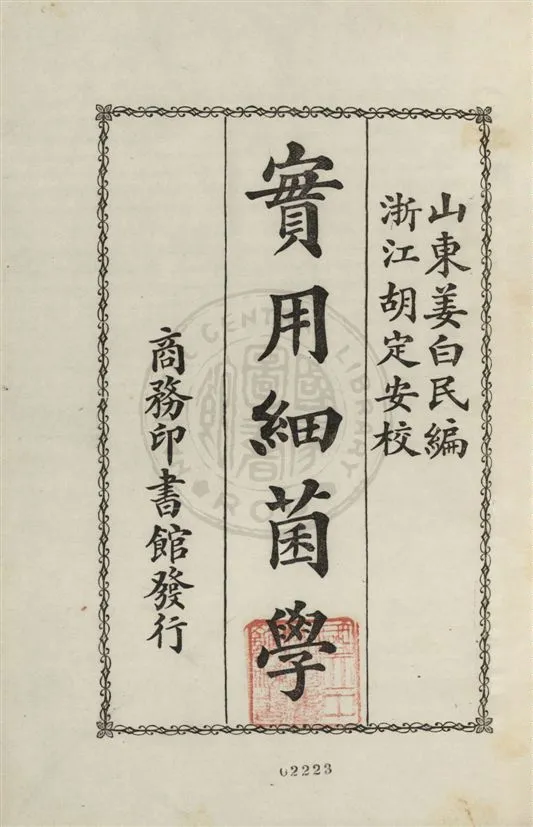 山東姜白民編
浙江胡定安校
實用細菌學
商務印書館發行
02223